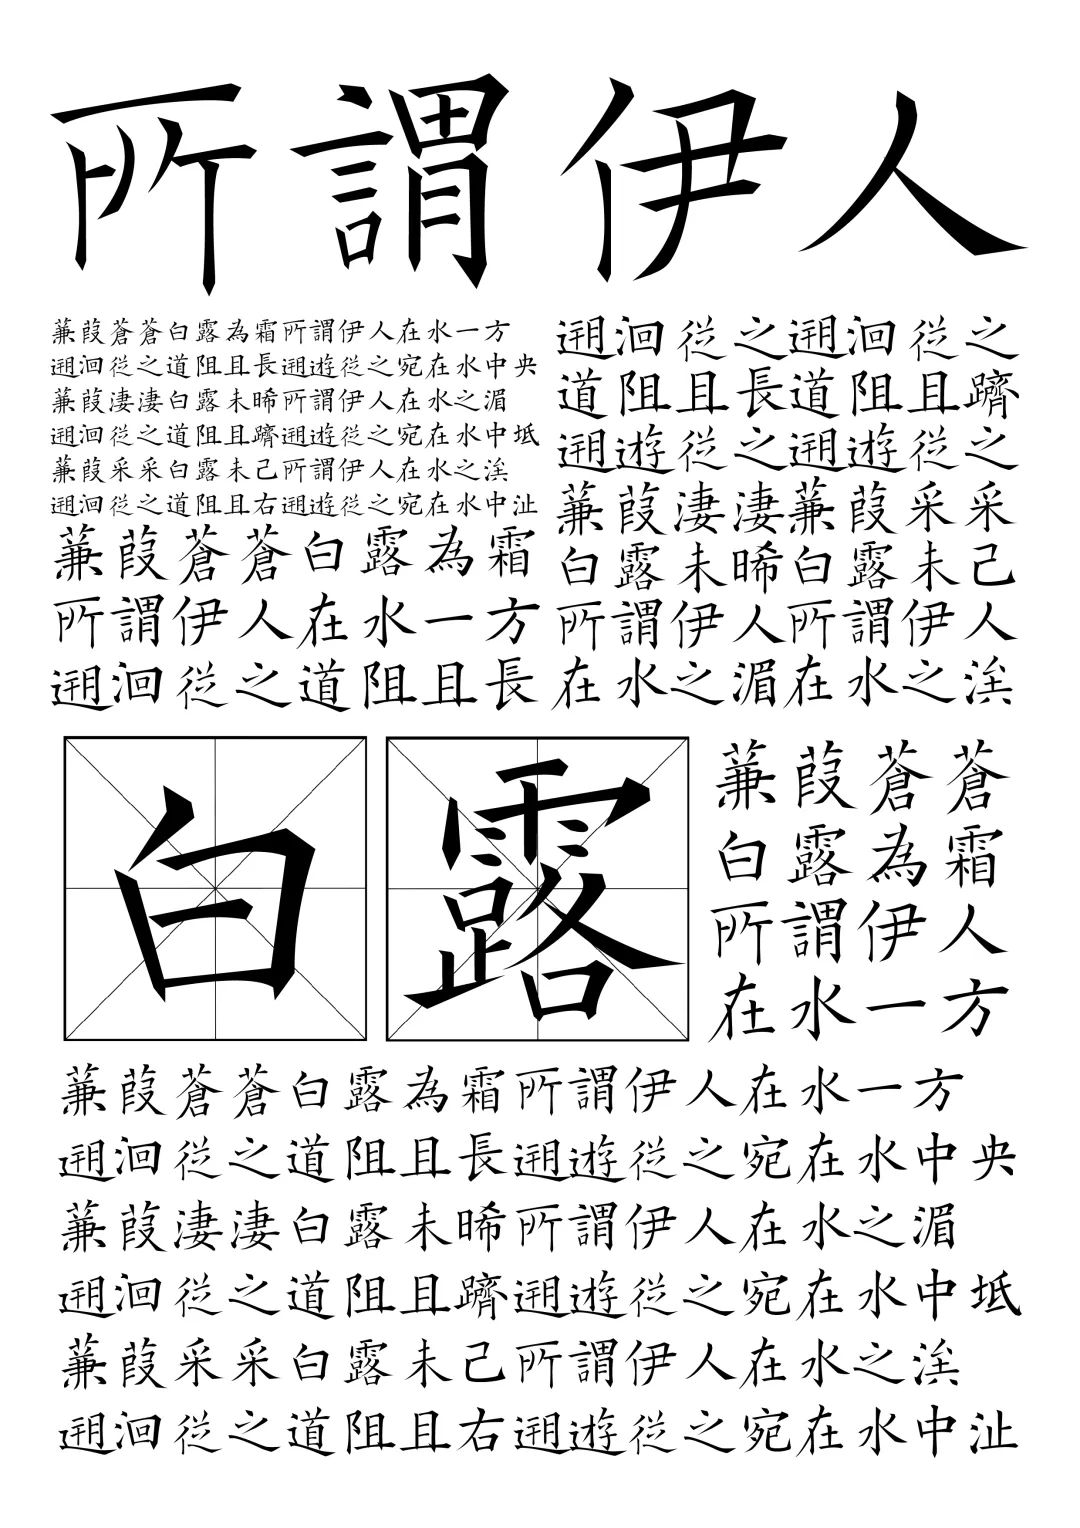 所謂伊人
蒹葭蒼蒼白露為霜所謂伊人在水一方
遡洄從之道阻且長遡遊從之宛在水中央
蒹葭淒淒白露未晞所謂伊人在水之湄
遡洄從之道阻且躋遡遊從之宛在水中坻
蒹葭采采白露未已所謂伊人在水之涘
遡洄從之道阻且右遡遊從之宛在水中沚
蒹葭蒼蒼白露為霜
所謂伊人在水一方
遡洄從之道阻且長
遡洄從之遡洄從之
道阻且長道阻且躋
遡遊從之遡遊從之
蒹葭淒淒蒹葭采采
白露未晞白露未已
所謂伊人所謂伊人
在水之湄在水之涘
白露
蒹葭蒼蒼
白露為霜
所謂伊人
在水一方
蒹葭蒼蒼白露為霜所謂伊人在水一方
遡洄從之道阻且長遡遊從之宛在水中央
蒹葭淒淒白露未晞所謂伊人在水之湄
遡洄從之道阻且躋遡遊從之宛在水中坻
蒹葭采采白露未已所謂伊人在水之涘
遡洄從之道阻且右遡遊從之宛在水中沚